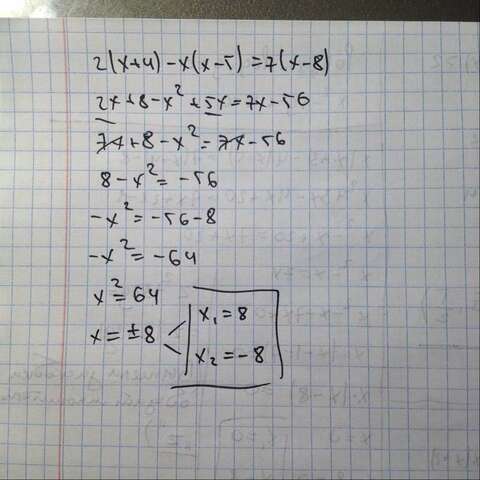 2(x+4)-x(x-5)=7(x-8)
2x+8-x²+5x=7x-56
7x+8-x²=7x-56
8-x²=-56
-x²=-56-8
-x²=-64
x²=64
x=±8
x₁=8
x₂=-8